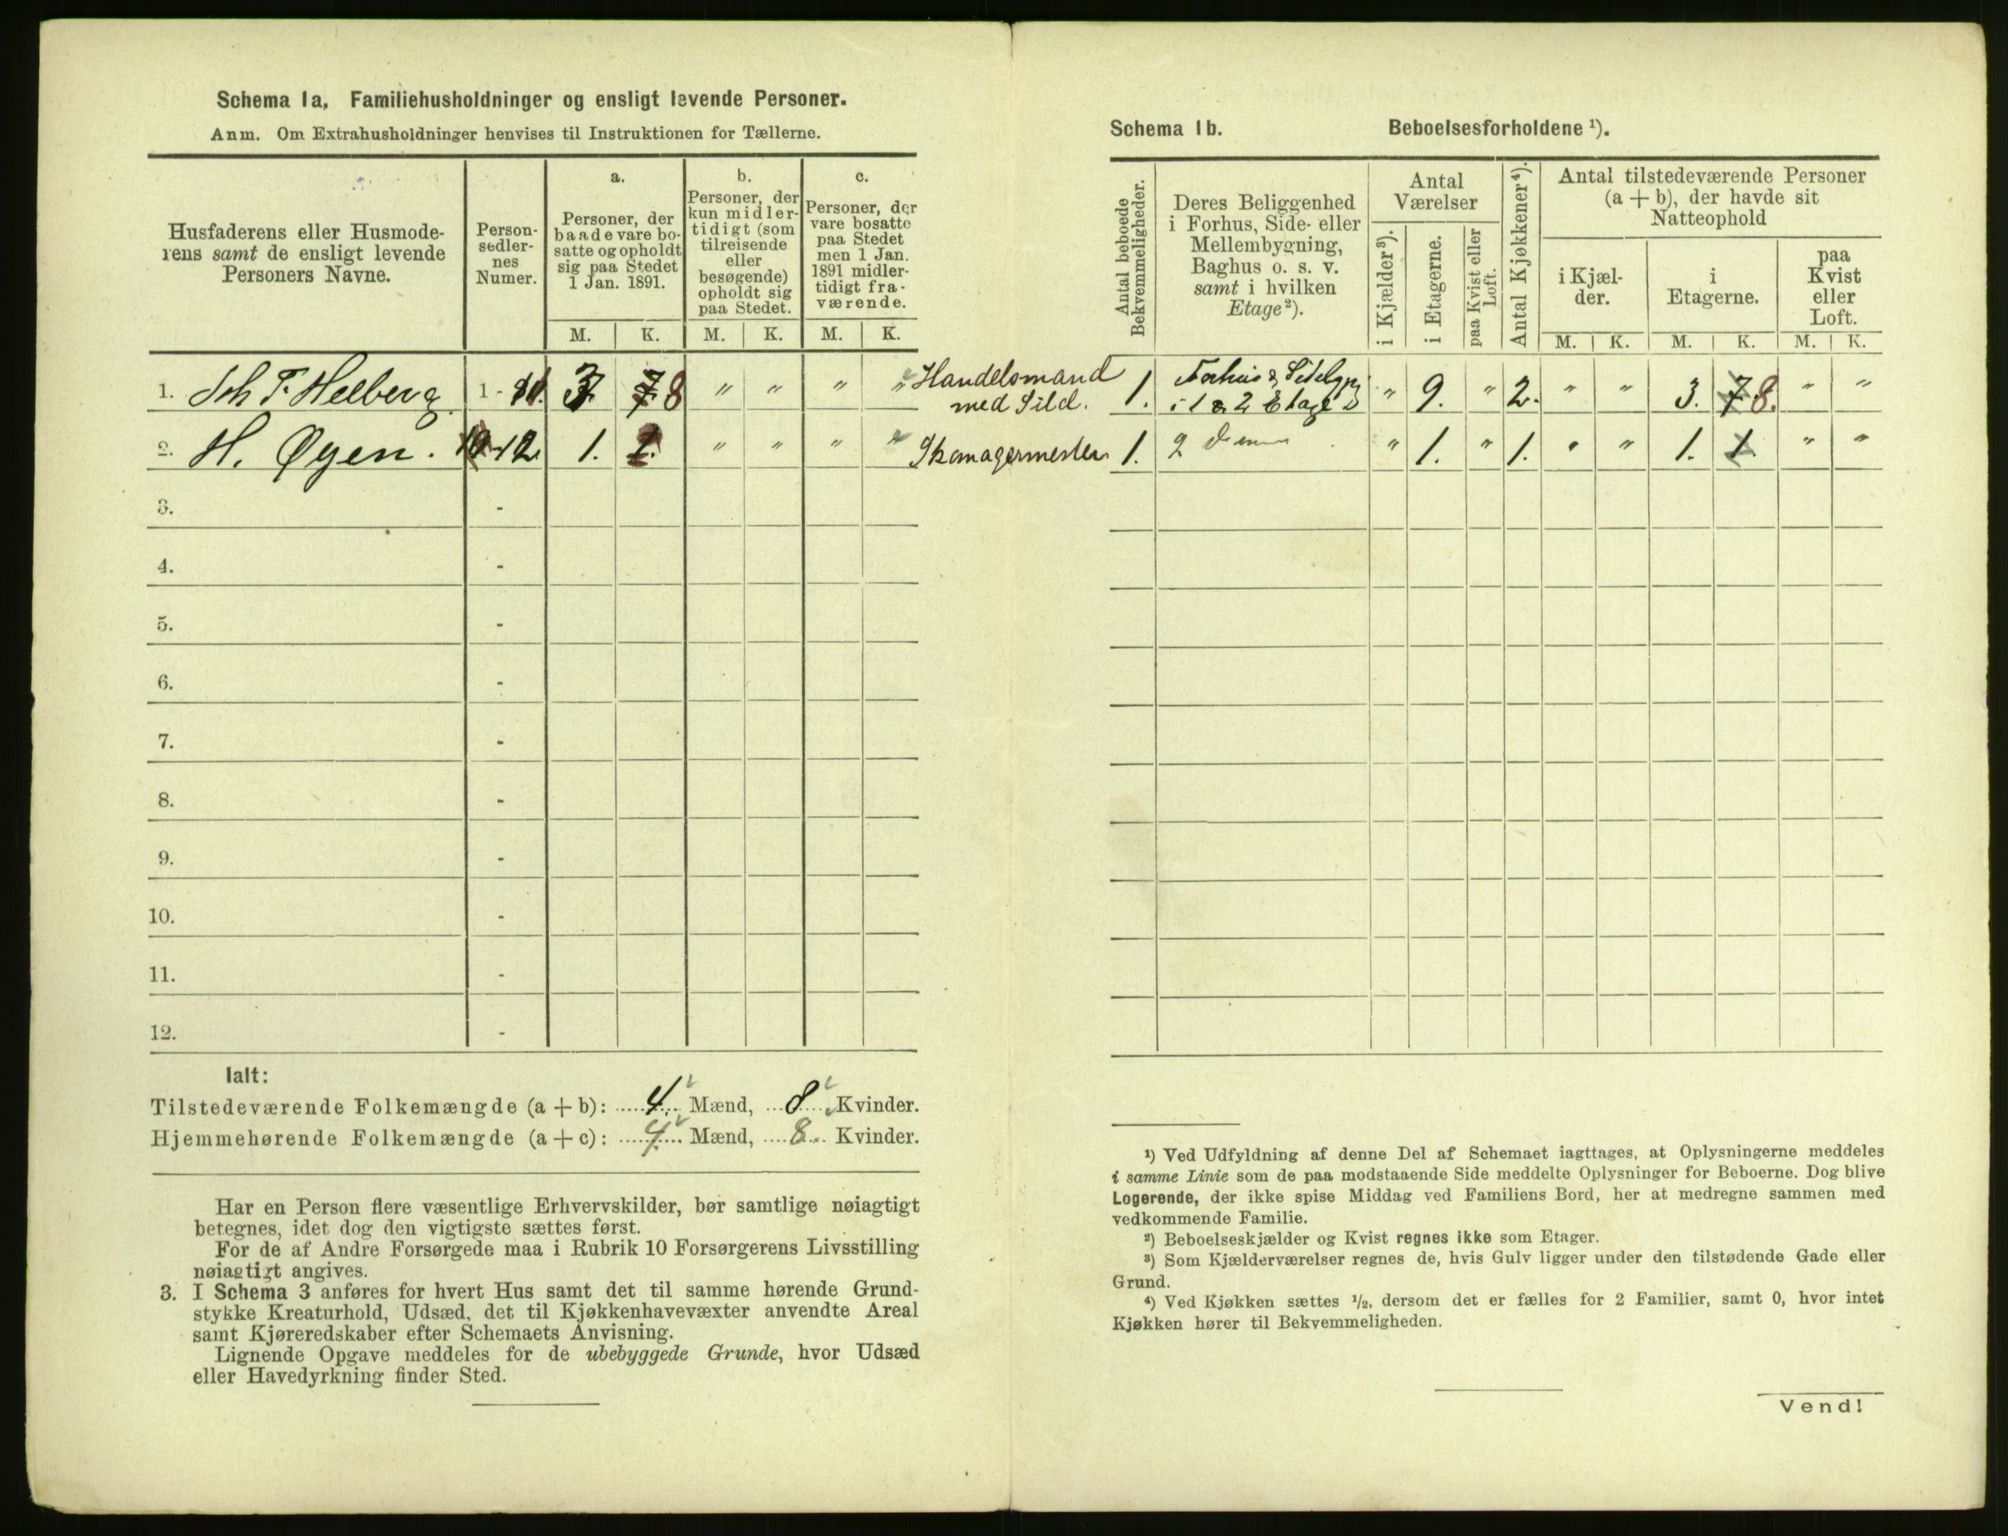 Schema 1a, Familiehusholdninger og ensligt levende Personer.
Anm. Om Extrahusholdninger henvises til Instruktionen for Tællerne.
Husfaderens eller Husmode-
rens samt de ensligt levende
Personers Navne.
Person-
sedler-
nes
Numer.
a.
Personer, der
baade vare bo-
satte og opholdt
sig paa Stedet
1 Jan. 1891.
b.
Personer, der
kun midler-
tidigt (som
tilreisende
eller
besøgende)
opholdt sig
paa Stedet.
c.
Personer, der
vare bosatte
paa Stedet
men 1 Jan.
1891 midler-
tidigt fra-
værende.
M. K. M. K. M. K.
1. Joh F. Helberg 1 - 11. 3. 7. 8 " " " "
2. H. Øyen. 12 1. 1. " " " "
3. -
4. -
5. -
6. -
7. -
8. -
9. -
10. -
11. -
12. -
Ialt:
Tilstedeværende Folkemængde (a + b): 4. Mænd, 8 Kvinder.
Hjemmehørende Folkemængde (a + c): 4. Mænd, 8 Kvinder.
Har en Person flere væsentlige Erhvervskilder, bør samtlige nøiagtigt
betegnes, idet dog den vigtigste sættes først.
For de af Andre Forsørgede maa i Rubrik 10 Forsørgerens Livsstilling
nøiagtigt angives.
3. I Schema 3 anføres for hvert Hus samt det til samme hørende Grund-
stykke Kreaturhold, Udsæd, det til Kjøkkenhavevæxter anvendte Areal
samt Kjøreredskaber efter Schemaets Anvisning.
Lignende Opgave meddeles for de ubebyggede Grunde, hvor Udsæd
eller Havedyrkning finder Sted.
Schema 1b. Beboelsesforholdene ¹).
Antal beboede
Bekvemmeligheder.
Deres Beliggenhed
i Forhus, Side- eller
Mellembygning,
Baghus o. s. v.
samt i hvilken
Etage²).
Antal
Værelser
i Kjælder³).
i Etagerne.
paa Kvist eller
Loft.
Antal Kjøkkener⁴).
Antal tilstedeværende Personer
(a + b), der havde sit
Natteophold
i Kjæl-
der.
i
Etagerne.
paa
Kvist
eller
Loft.
M. K. M. K. M. K.
Handelsmand
med Sild. 1. Forhus & Sidebgn
i 1 & 2 Etage " 9. " 2. " " 3. 7 8. " "
Skomagermester 1. 2 " 1. " 1. " " 1. 1. " "
¹) Ved Udfyldning af denne Del af Schemaet iagttages, at Oplysningerne meddeles
i samme Linie som de paa modstaaende Side meddelte Oplysninger for Beboerne. Dog blive
Logerende, der ikke spise Middag ved Familiens Bord, her at medregne sammen med
vedkommende Familie.
²) Beboelseskjælder og Kvist regnes ikke som Etager.
³) Som Kjælderværelser regnes de, hvis Gulv ligger under den tilstødende Gade eller
Grund.
⁴) Ved Kjøkken sættes ½, dersom det er fælles for 2 Familier, samt 0, hvor intet
Kjøkken hører til Bekvemmeligheden.
Vend!